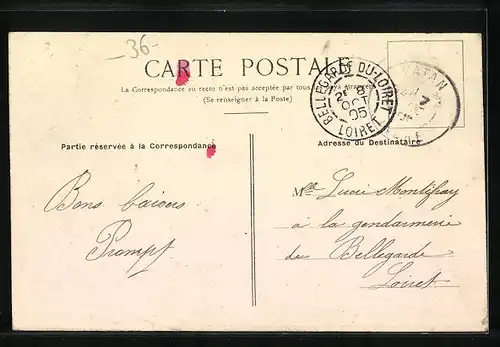 -36-
CARTE POSTALE
La Correspondance au recto n'est pas acceptée par tous
(Se renseigner à la Poste)
BELLEGARDE-DU-LOIRET
8
OCT
05
LOIRET
VATAN
7
Partie réservée à la Correspondance
Adresse du Destinataire
Bons baisers
Prompt
Mlle Lucie Montifray
à la gendarmerie
de Bellegarde
Loiret